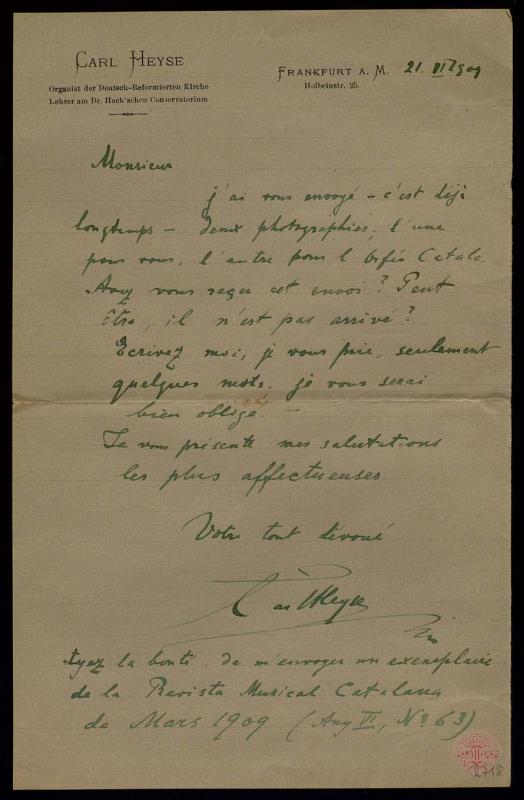 CARL HEYSE
Organist der Deutsch-Reformierten Kirche
Lehrer am Dr. Hoch'schen Conservatorium
FRANKFURT A. M. 21. VI 1909
Holbeinstr. 25.
Monsieur
j'ai vous envoyé – c'est déjà
longtemps – deux photographies, l'une
pour vous, l'autre pour l'Orfeó Catala.
Avez vous reçu cet envoi? Peut
être, il n'est pas arrivé?
Ecrivez moi, je vous prie, seulement
quelques mots. je vous serai
bien obligé. –
Je vous présente mes salutations
les plus affectueuses.
Votre tout dévoué
Carl Heyse
Ayez la bonté de m'envoyer un exemplaire
de la Revista Musical Catalana
de Mars 1909 (Any VI, No 63)
2718